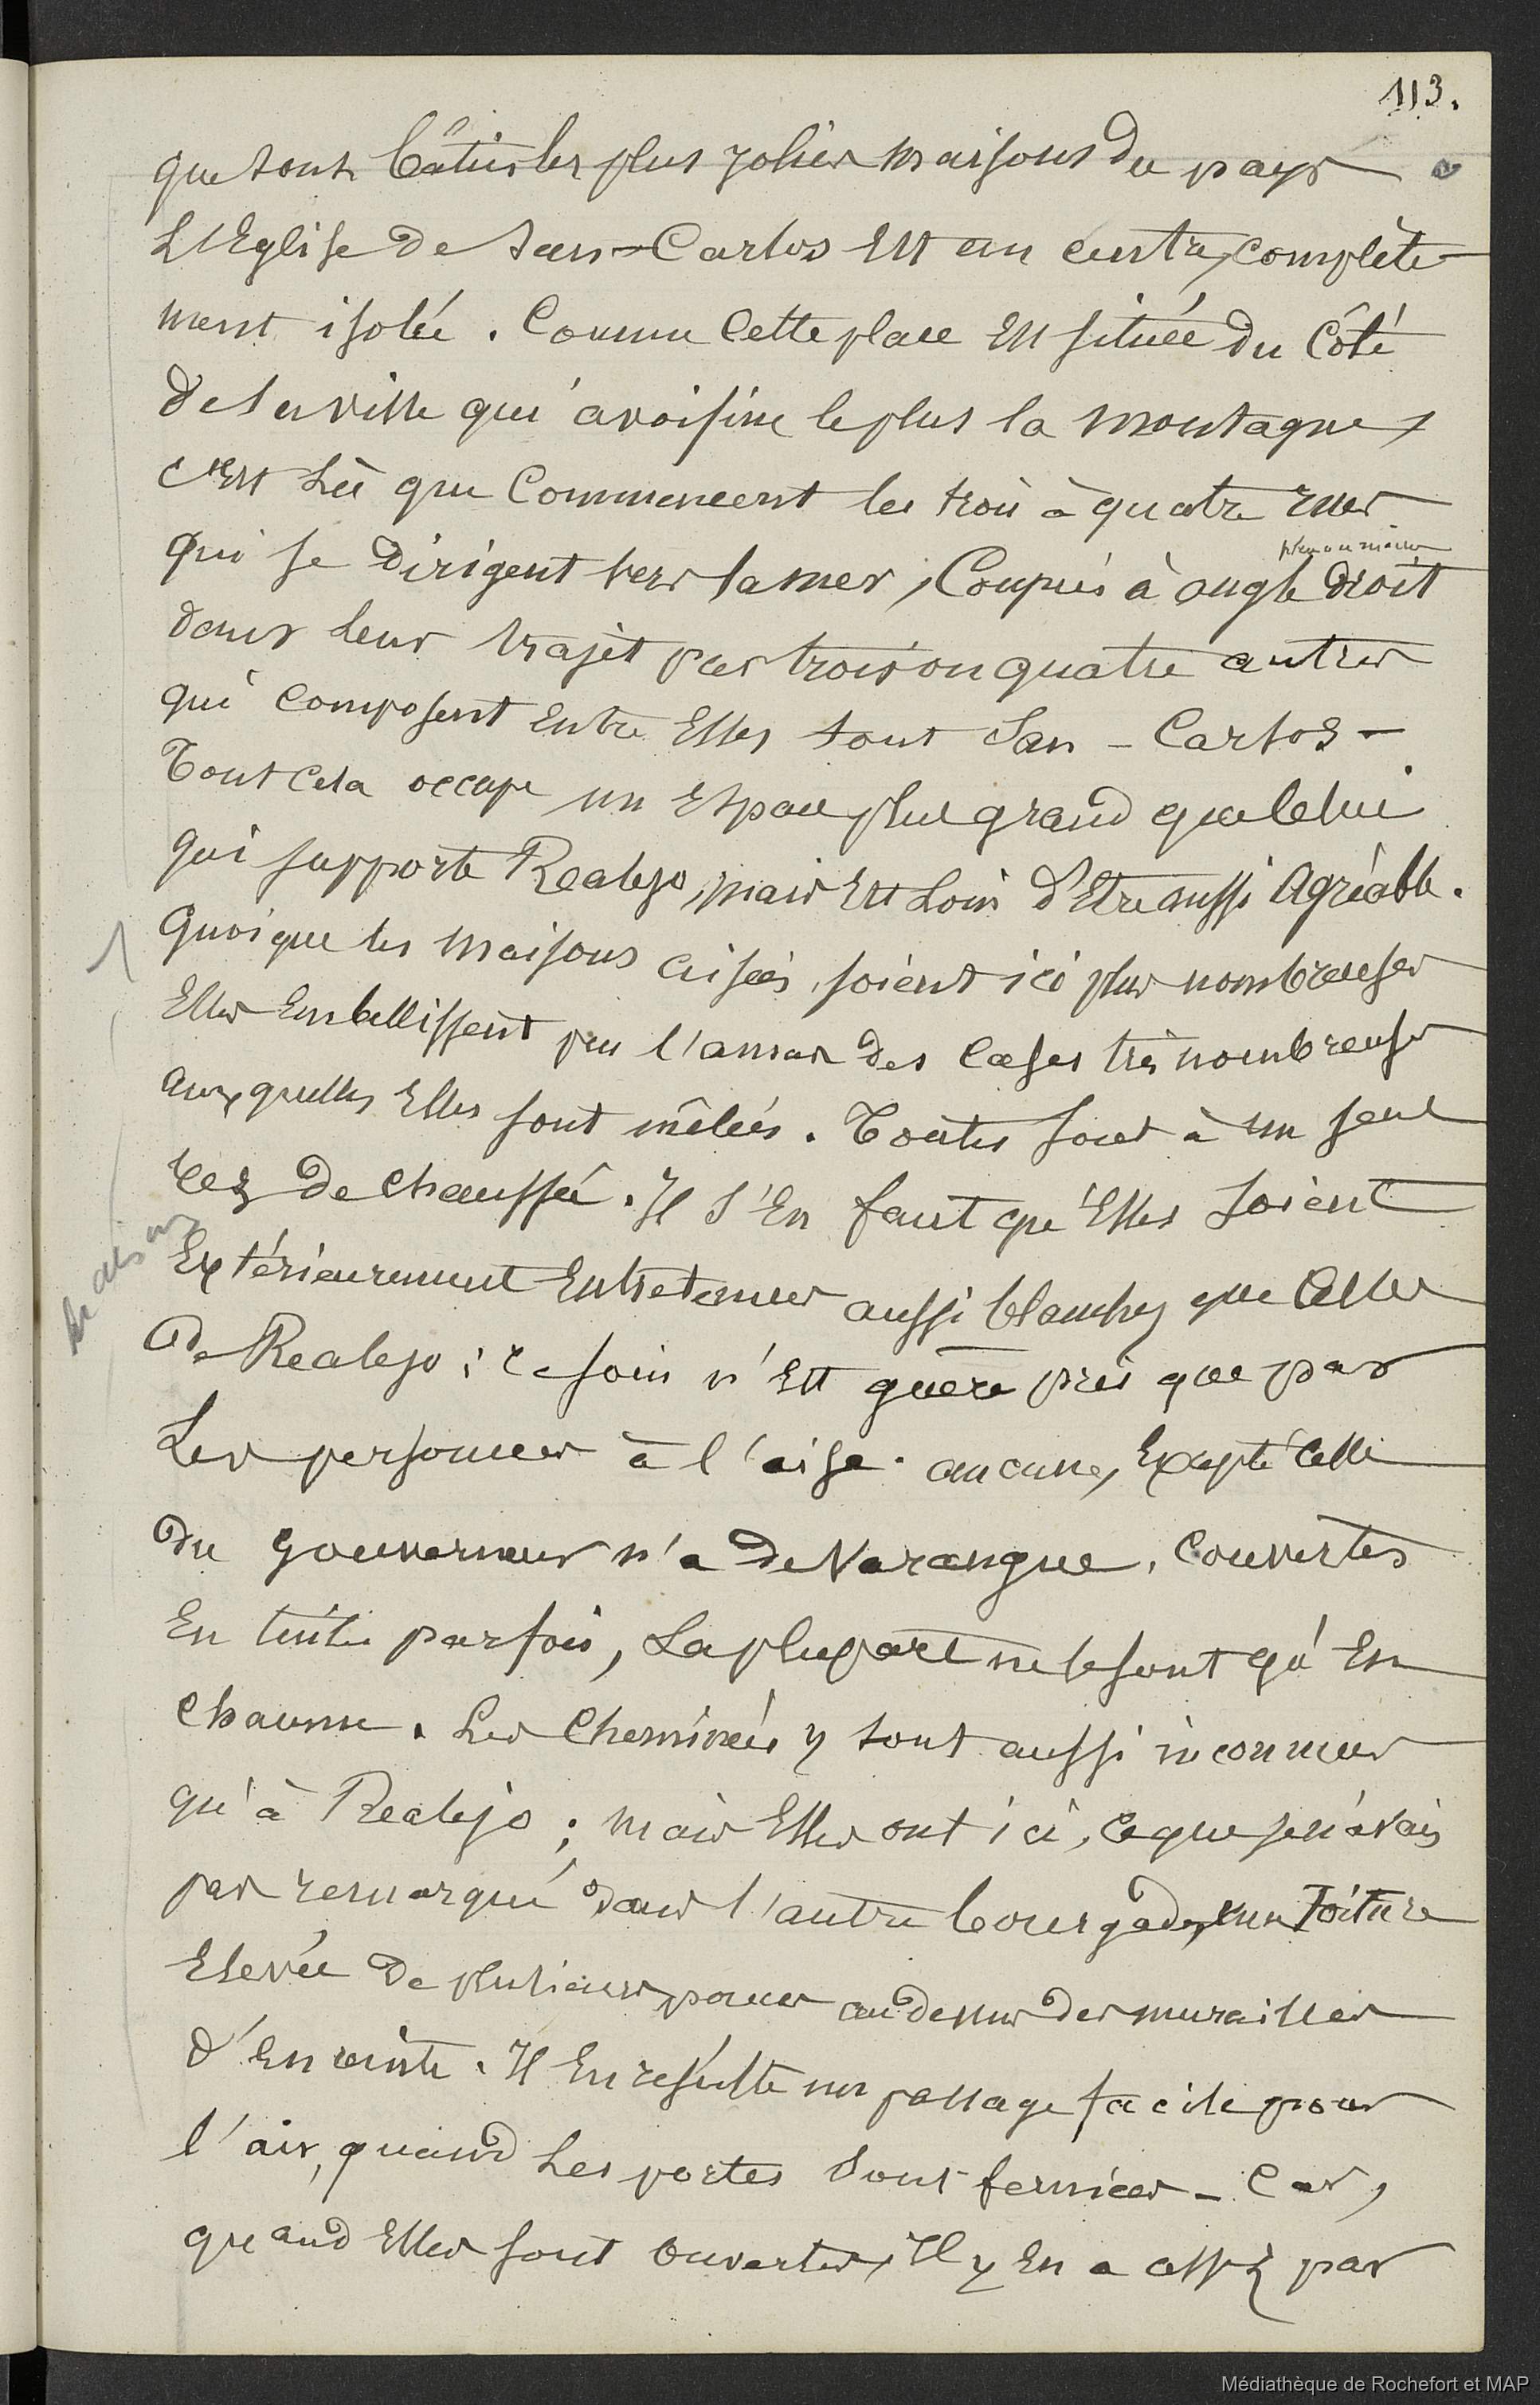 113.
que sont bâties les plus jolies maisons du pays
L'Eglise de San-Carlos Est au centre, complète-
ment isolée. Comme Cette place Est située du Côté
de la ville qui avoisine le plus la montagne,
c'Est Là que Commencent les trois à quatre rues
plus ou moins
qui se Dirigent vers la mer, Coupées à angle droit
dans leur trajet par trois ou quatre autres
qui Composent Entre Elles tout San-Carlos-
Tout Cela occupe un Espace plus grand que Celui
qui supporte Realejo, mais Est Loin d'Etre aussi Agréable.
Quoique les maisons aisées, soient ici plus nombreuses
Elles Embellissent peu l'amas des Cases très nombreuses
auxquelles Elles sont mêlées. Toutes sont à un seul
rez De chaussée. Il S'En faut qu'Elles soient
Extérieurement Entretenues aussi blanches que Celles
De Realejo; ce soin n'Est guère pris que par
Les personnes à l'aise. aucune, Excepté Celle
du Gouverneur n'a de Varangue. Couvertes
En tuiles parfois, La plupart ne le sont qu'En
Chaume. Les Cheminées y sont aussi inconnues
qu'à Realejo; mais Elles ont ici, Ce que je n'avais
pas remarqué dans l'autre bourgade, une Toiture
Elevée de plusieurs pouces au dessus des murailles
d'Enceinte. Il En résulte un passage facile pour
l'air, quand Les portes sont fermées - Car,
quand Elles sont ouvertes, Il y En a assez par
Médiathèque de Rochefort et MAP